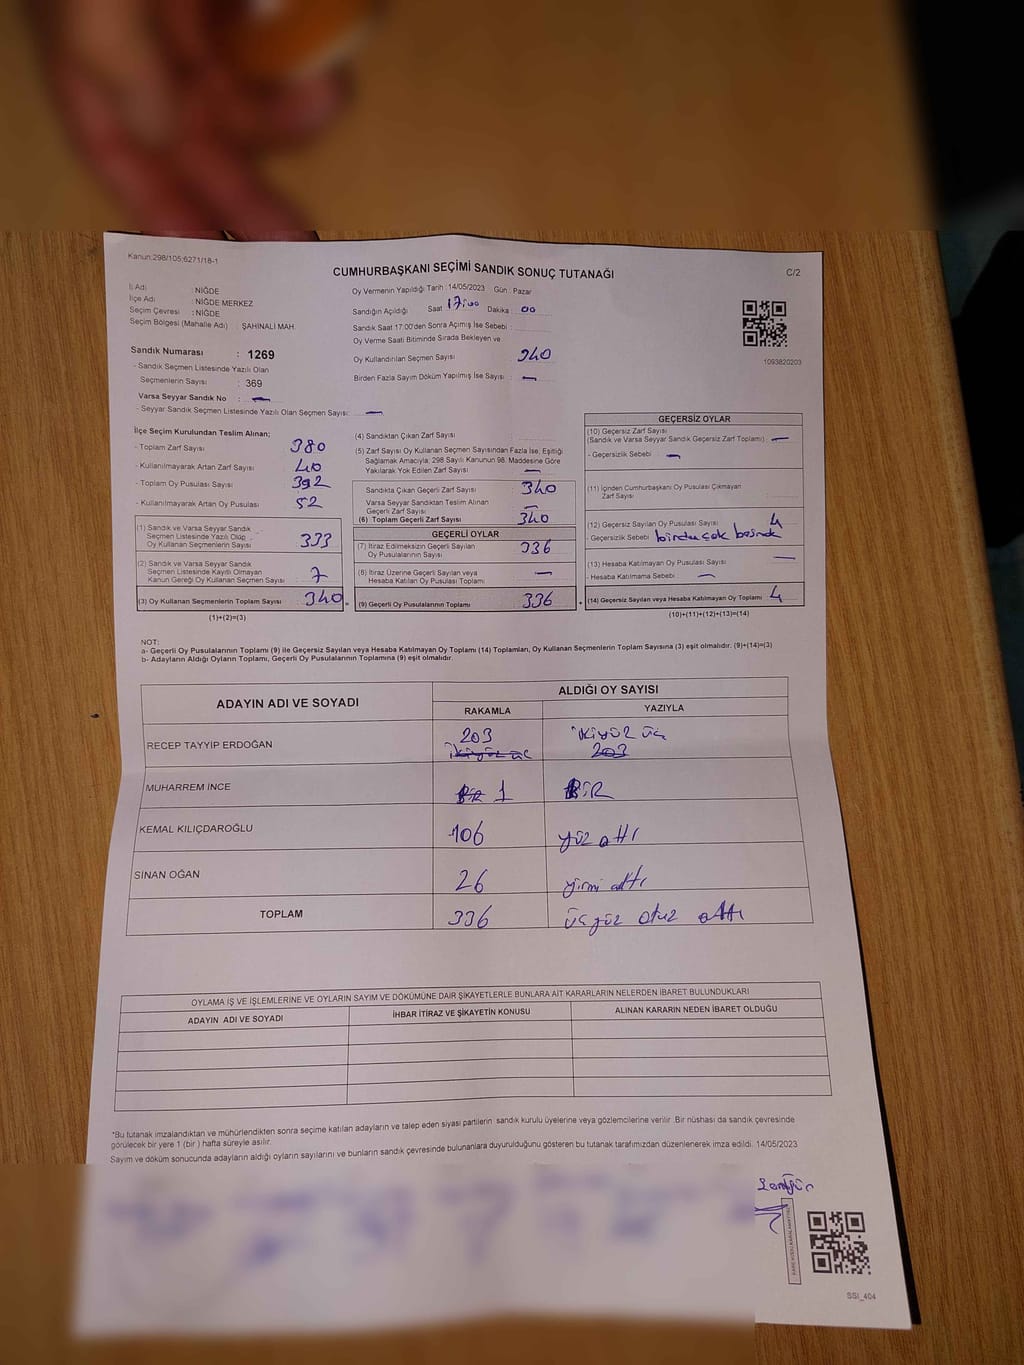 Kanun:298/105;6271/18-1
CUMHURBAŞKANI SEÇİMİ SANDIK SONUÇ TUTANAĞI
C/2
İl Adı : NİĞDE
İlçe Adı : NİĞDE MERKEZ
Seçim Çevresi : NİĞDE
Seçim Bölgesi (Mahalle Adı) : ŞAHİNALİ MAH.
Sandık Numarası : 1269
- Sandık Seçmen Listesinde Yazılı Olan
Seçmenlerin Sayısı : 369
Varsa Seyyar Sandık No : —
- Seyyar Sandık Seçmen Listesinde Yazılı Olan Seçmen Sayısı: —
Oy Vermenin Yapıldığı Tarih : 14/05/2023 Gün : Pazar
Sandığın Açıldığı Saat 17:00 Dakika : 00
Sandık Saat 17:00'den Sonra Açımış İse Sebebi :
Oy Verme Saati Bitiminde Sırada Bekleyen ve
Oy Kullandırılan Seçmen Sayısı 340
Birden Fazla Sayım Döküm Yapılmış İse Sayısı : —
1093820203
İlçe Seçim Kurulundan Teslim Alınan;
- Toplam Zarf Sayısı 380
- Kullanılmayarak Artan Zarf Sayısı 40
- Toplam Oy Pusulası Sayısı 392
- Kullanılmayarak Artan Oy Pusulası 52
(1) Sandık ve Varsa Seyyar Sandık
Seçmen Listesinde Yazılı Olup
Oy Kullanan Seçmenlerin Sayısı 333
(2) Sandık ve Varsa Seyyar Sandık
Seçmen Listesinde Kayıtlı Olmayan
Kanun Gereği Oy Kullanan Seçmen Sayısı : 7
(3) Oy Kullanan Seçmenlerin Toplam Sayısı 340 =
(1)+(2)=(3)
(4) Sandıktan Çıkan Zarf Sayısı :
(5) Zarf Sayısı Oy Kullanan Seçmen Sayısından Fazla İse, Eşitliği
Sağlamak Amacıyla; 298 Sayılı Kanunun 98. Maddesine Göre
Yakılarak Yok Edilen Zarf Sayısı : —
Sandıkta Çıkan Geçerli Zarf Sayısı : 340
Varsa Seyyar Sandıktan Teslim Alınan
Geçerli Zarf Sayısı : —
(6) Toplam Geçerli Zarf Sayısı : 340
GEÇERLİ OYLAR
(7) İtiraz Edilmeksizin Geçerli Sayılan
Oy Pusulalarının Sayısı : 336
(8) İtiraz Üzerine Geçerli Sayılan veya
Hesaba Katılan Oy Pusulası Toplamı : —
(9) Geçerli Oy Pusulalarının Toplamı : 336 +
GEÇERSİZ OYLAR
(10) Geçersiz Zarf Sayısı
(Sandık ve Varsa Seyyar Sandık Geçersiz Zarf Toplamı) : —
- Geçersizlik Sebebi : —
(11) İçinden Cumhurbaşkanı Oy Pusulası Çıkmayan
Zarf Sayısı :
(12) Geçersiz Sayılan Oy Pusulası Sayısı : 4
- Geçersizlik Sebebi
(13) Hesaba Katılmayan Oy Pusulası Sayısı : —
- Hesaba Katılmama Sebebi : —
(14) Geçersiz Sayılan veya Hesaba Katılmayan Oy Toplamı : 4
(10)+(11)+(12)+(13)=(14)
NOT:
a- Geçerli Oy Pusulalarının Toplamı (9) ile Geçersiz Sayılan veya Hesaba Katılmayan Oy Toplamı (14) Toplamları, Oy Kullanan Seçmenlerin Toplam Sayısına (3) eşit olmalıdır. (9)+(14)=(3)
b- Adayların Aldığı Oyların Toplamı, Geçerli Oy Pusulalarının Toplamına (9) eşit olmalıdır.
ADAYIN ADI VE SOYADI
ALDIĞI OY SAYISI
RAKAMLA YAZIYLA
RECEP TAYYIP ERDOĞAN 203 ikiyüz üç
ikiyüz üç 203
MUHARREM İNCE BİR 1 BİR
KEMAL KILIÇDAROĞLU 106 yüz altı
SİNAN OĞAN 26 yirmi altı
TOPLAM 336 üçyüz otuz altı
OYLAMA İŞ VE İŞLEMLERİNE VE OYLARIN SAYIM VE DÖKÜMÜNE DAİR ŞİKAYETLERLE BUNLARA AİT KARARLARIN NELERDEN İBARET BULUNDUKLARI
ADAYIN ADI VE SOYADI İHBAR İTİRAZ VE ŞİKAYETİN KONUSU ALINAN KARARIN NEDEN İBARET OLDUĞU
*Bu tutanak imzalandıktan ve mühürlendikten sonra seçime katılan adayların ve talep eden siyasi partilerin sandık kurulu üyelerine veya gözlemcilerine verilir. Bir nüshası da sandık çevresinde
görülecek bir yere 1 (bir ) hafta süreyle asılır.
Sayım ve döküm sonucunda adayların aldığı oyların sayılarını ve bunların sandık çevresinde bulunanlara duyurulduğunu gösteren bu tutanak tarafımızdan düzenlenerek imza edildi. 14/05/2023
SSİ_404